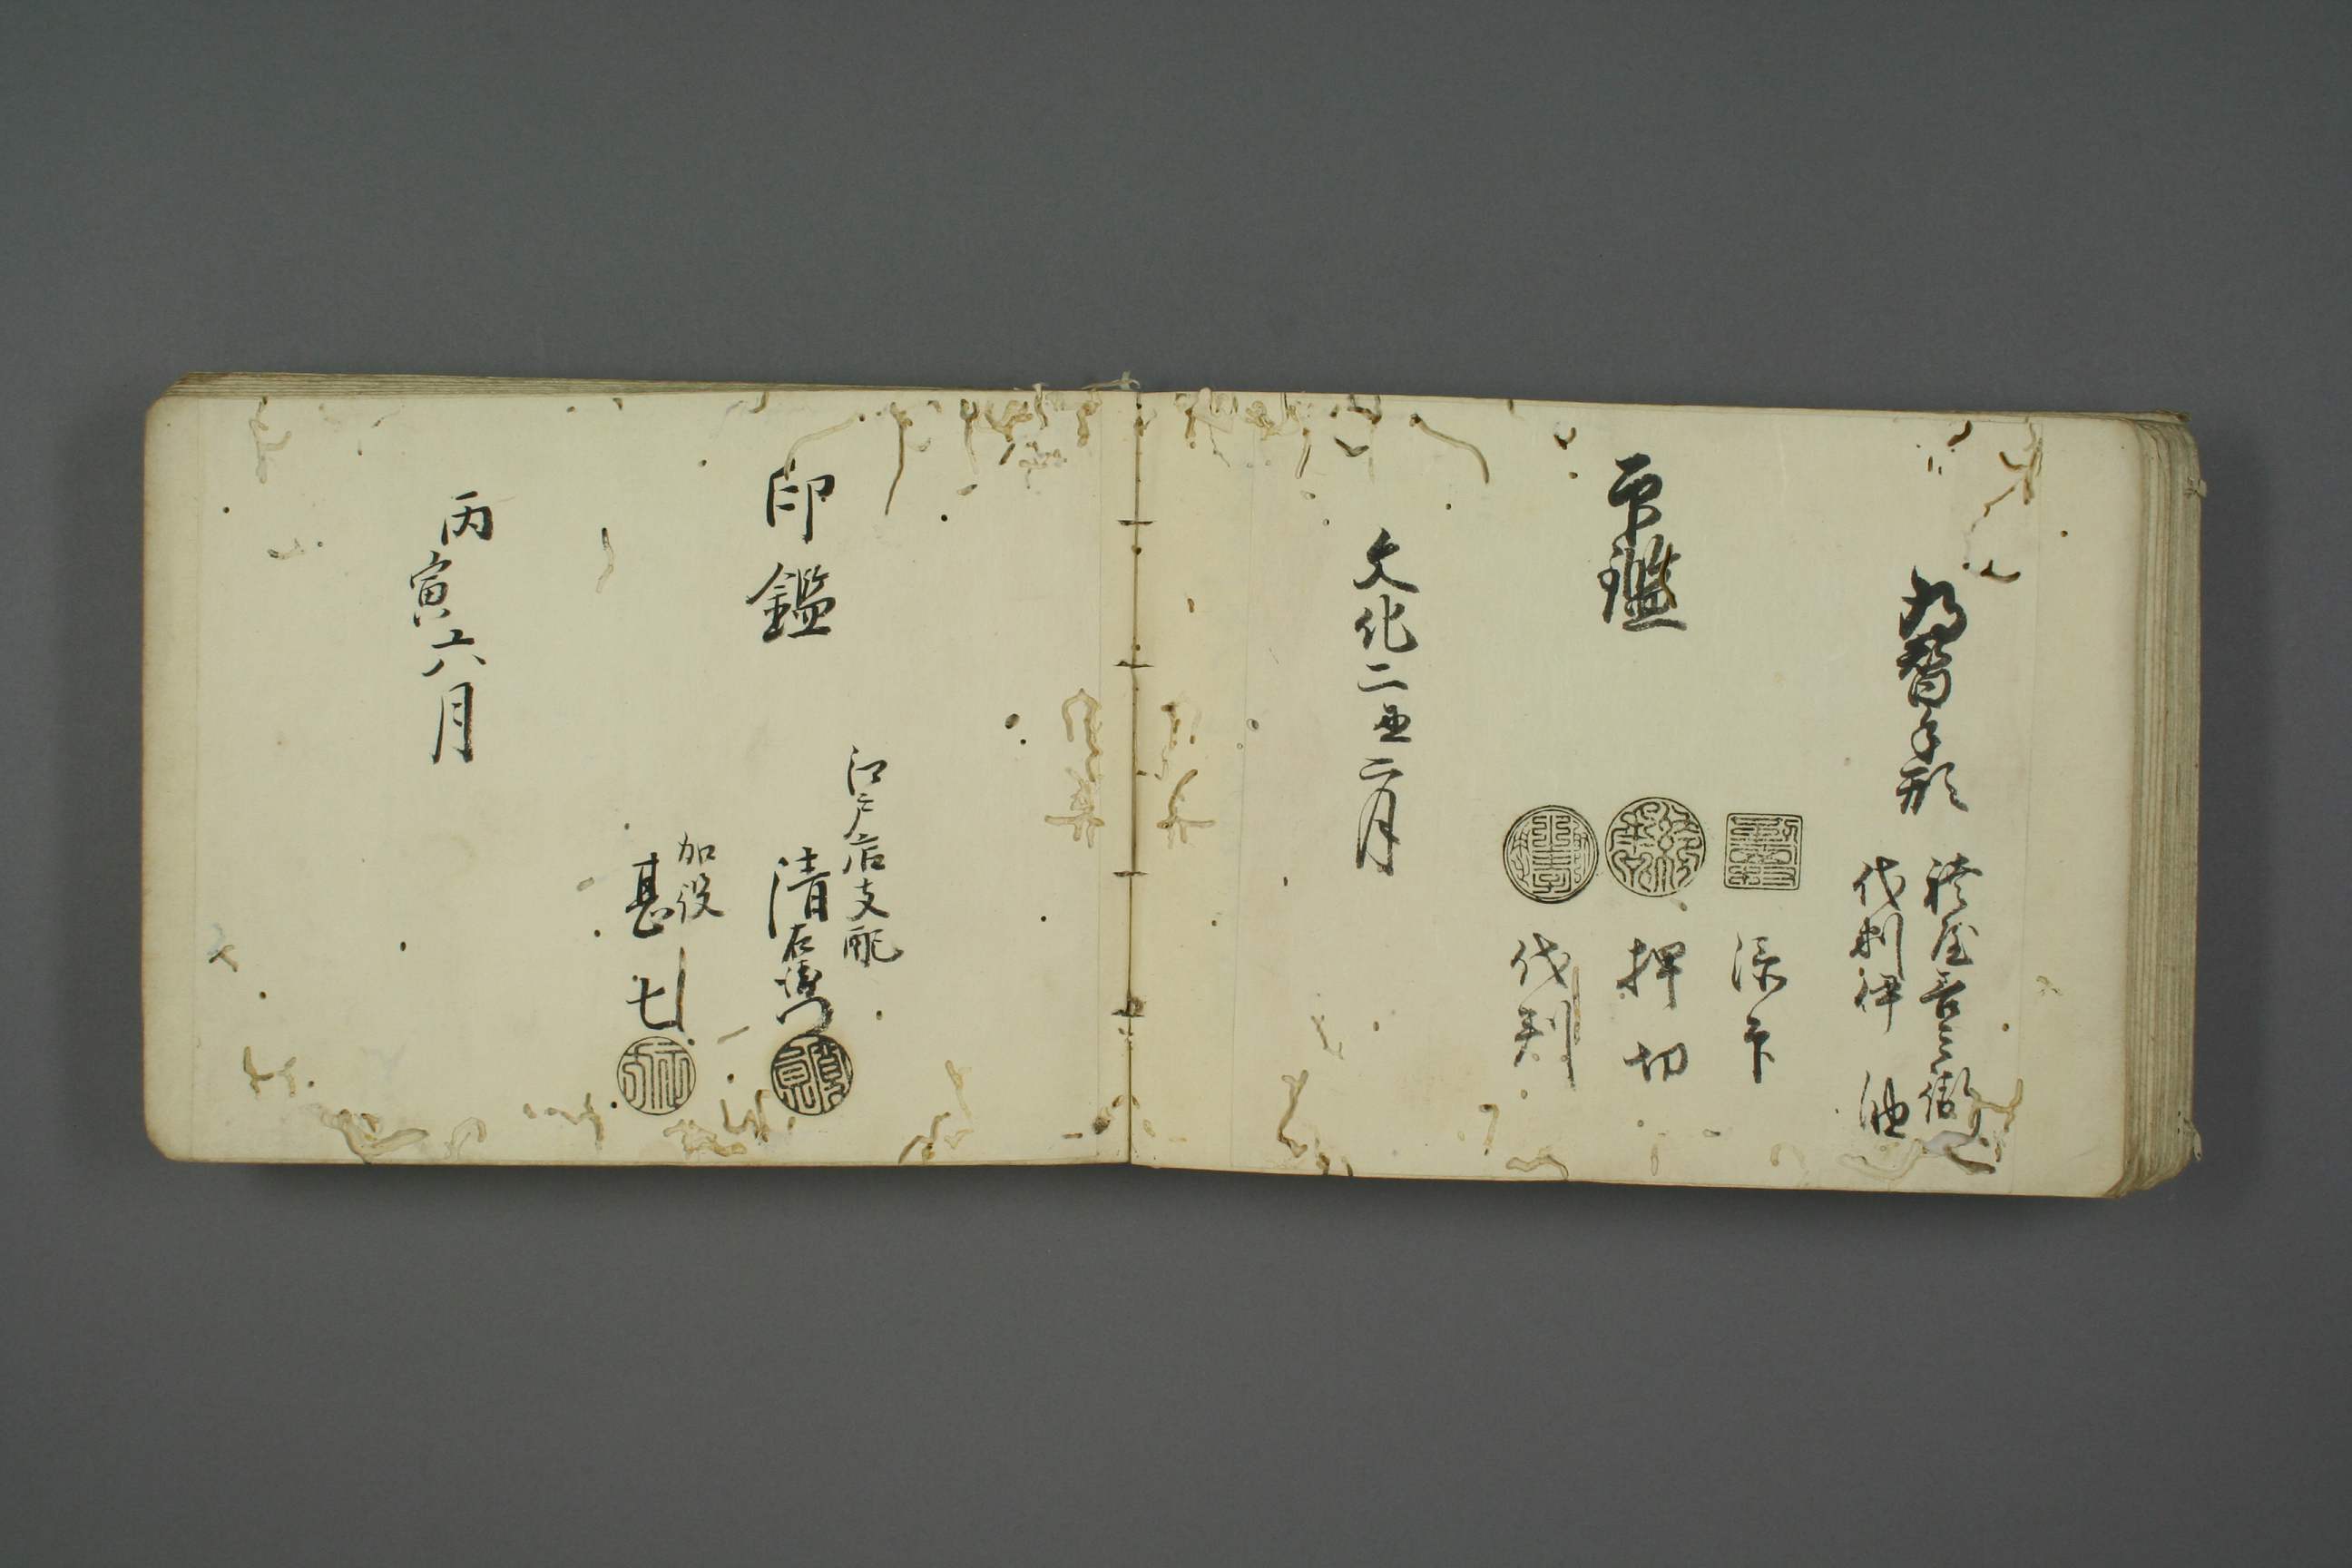 為替手形
印鑑
添印
押切
代判
文化二丑二月
印鑑
江戸店支配
清右衛門
加役
甚七
丙寅六月